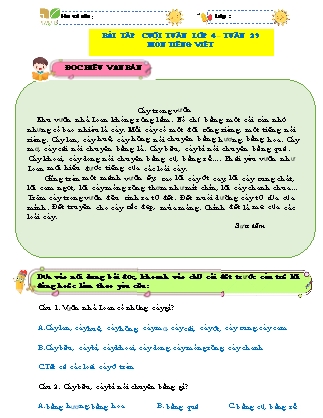 Họ và tên:
Lớp:
BÀI TẬP CUỐI TUẦN LỚP 4 - TUẦN 29
MÔN TIẾNG VIỆT
ĐỌC HIỂU VĂN BẢN
Cây trong vườn
Khu vườn nhà Loan không rộng lắm. Nó chỉ bằng một cái sân nhỏ
nhưng có bao nhiêu là cây. Mỗi cây có một đời sống riêng, một tiếng nói
riêng. Cây lan, cây huệ, cây hồng nói chuyện bằng hương, bằng hoa. Cây
mơ, cây cải nói chuyện bằng lá. Cây bầu, cây bí nói chuyện bằng quả.
Cây khoai, cây dong nói chuyện bằng củ, bằng rễ... Phải yêu vườn như
Loan mới hiểu được tiếng của các loài cây.
Cũng trên một mảnh vườn ấy, sao lời cây ớt cay, lời cây sung chát,
lời cam ngọt, lời cây móng rồng thơm như mít chín, lời cây chanh chua...
Trăm cây trong vườn đều sinh ra từ đất. Đất nuôi dưỡng cây từ sữa của
mình. Đất truyền cho cây sắc đẹp, mùa màng. Chính đất là mẹ của các
loài cây.
Sưu tầm
Dựa vào nội dung bài đọc, khoanh vào chữ cái đặt trước câu trả lời
đúng hoặc làm theo yêu cầu:
Câu 1. Vườn nhà Loan có những cây gì?
A.Cây lan, cây huệ, cây hồng, cây mơ, cây cải, cây ớt, cây sung, cây cam
B.Cây bầu, cây bí, cây khoai, cây dong, cây móng rồng, cây chanh
C.Tất cả các loài cây ở trên
Câu 2. Cây bầu, cây bí nói chuyện bằng gì?
A.bằng hương, bằng hoa B. bằng quả C.bằng củ, bằng rễ